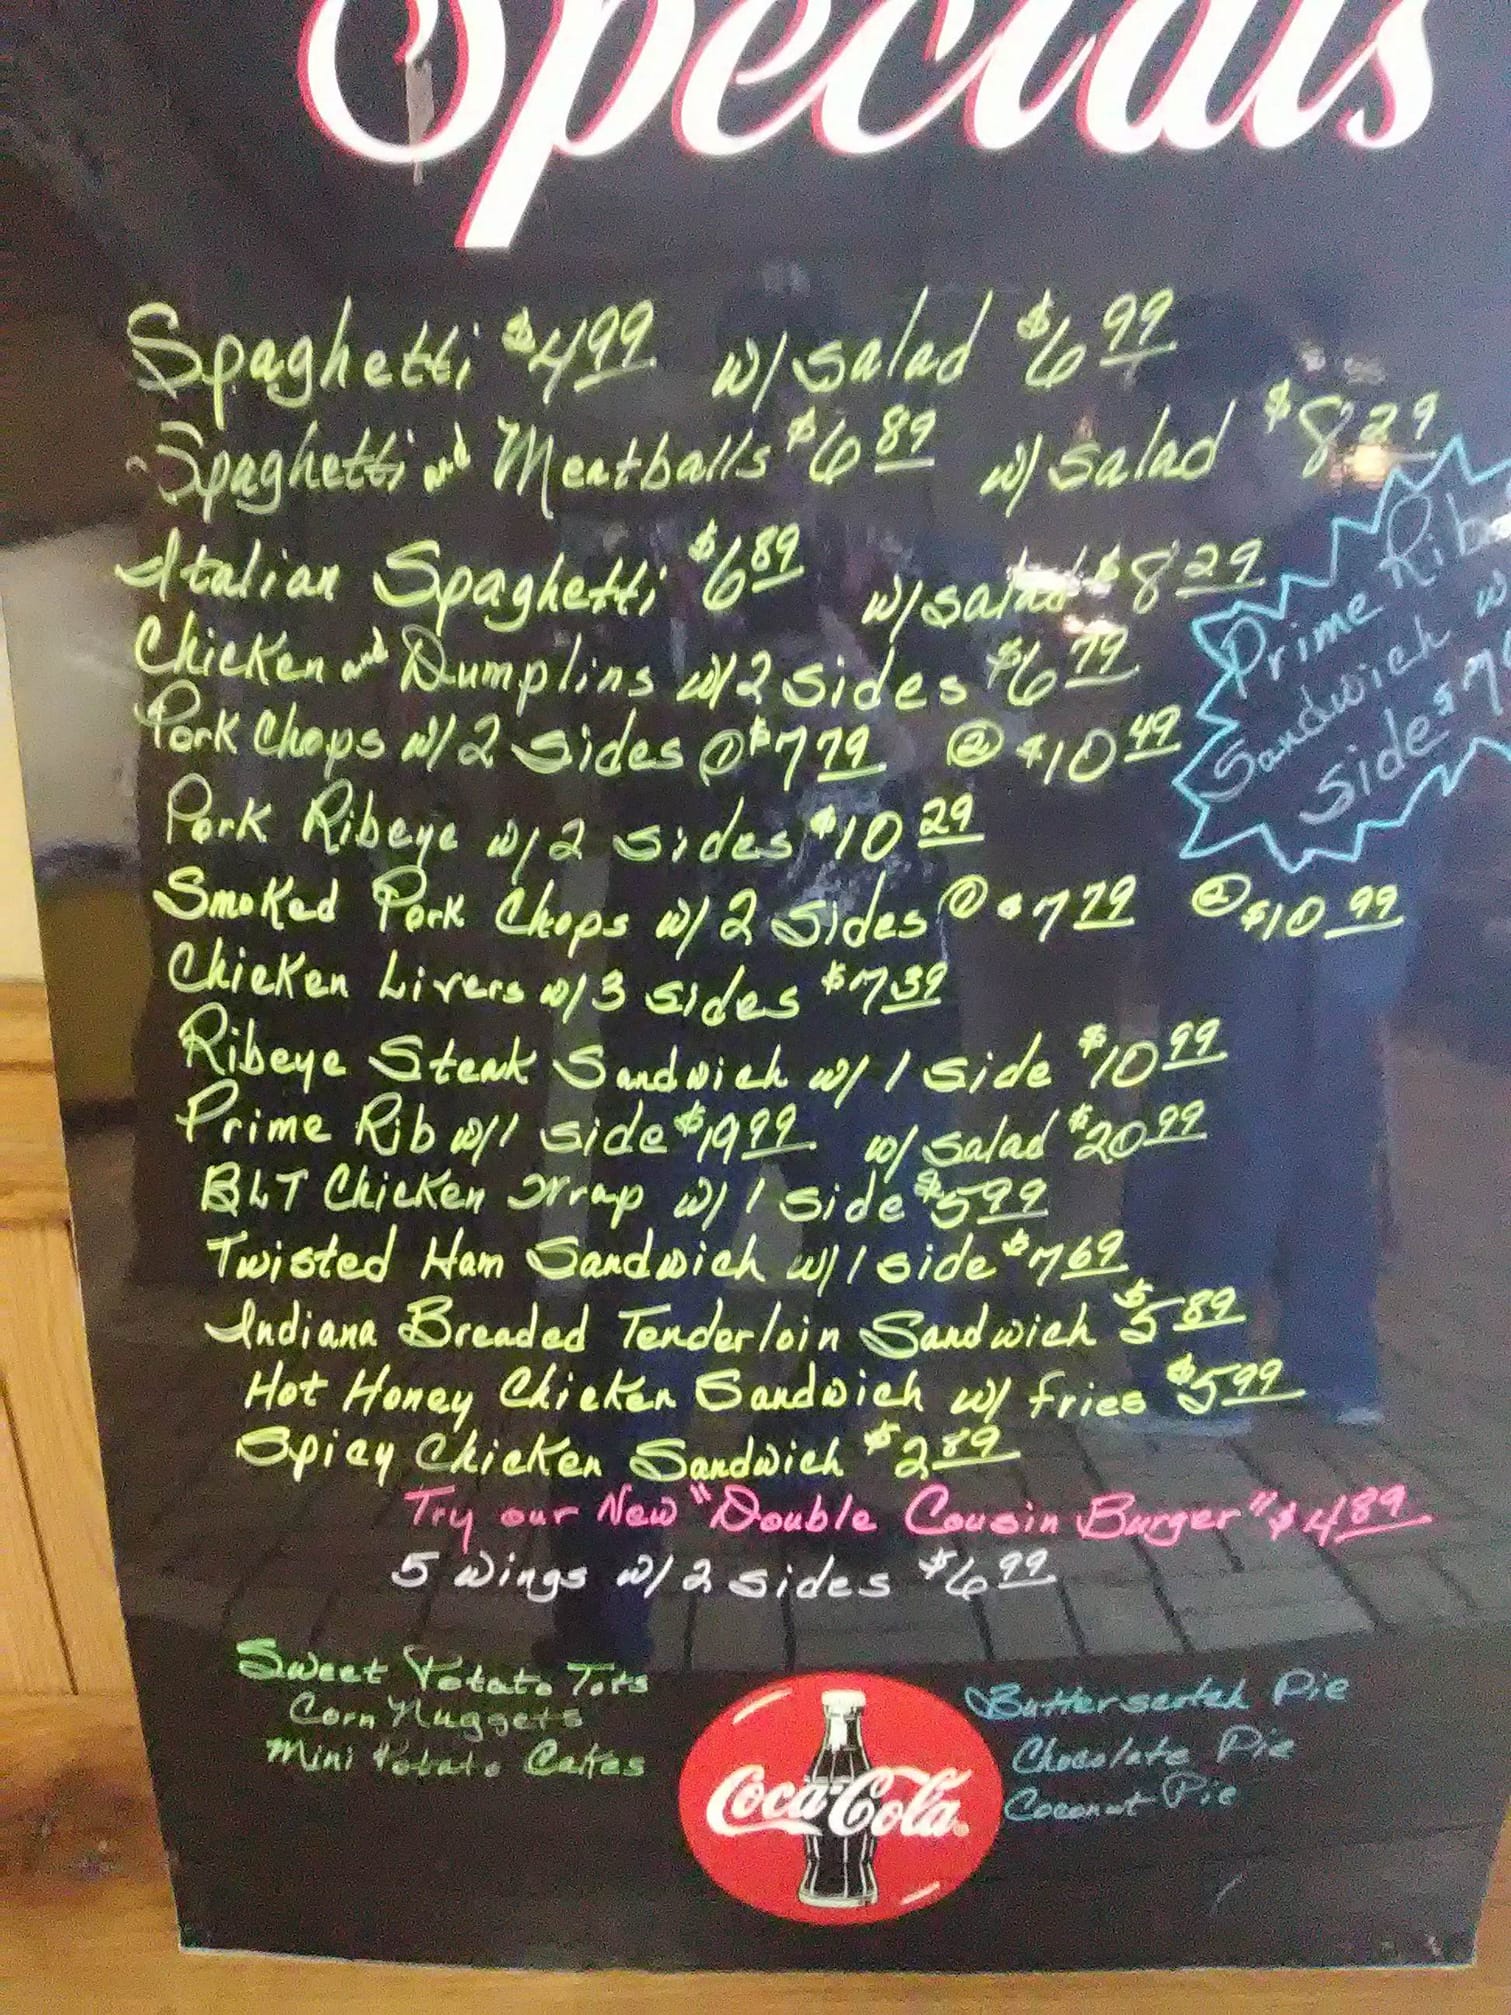 Specials
Spaghetti $4.99 w/ salad $6.99
Spaghetti and Meatballs $6.89 w/ salad $8.29
Italian Spaghetti $6.89 w/ salad $8.29
Chicken and Dumplins w/ 2 sides $6.79
Pork Chops w/ 2 sides ① $7.79 ② $10.49
Pork Ribeye w/ 2 sides $10.29
Smoked Pork Chops w/ 2 sides ① $7.79 ② $10.99
Chicken Livers w/ 3 sides $7.39
Ribeye Steak Sandwich w/ 1 side $10.99
Prime Rib w/ 1 side $19.99 w/ salad $20.99
BLT Chicken Wrap w/ 1 side $5.99
Twisted Ham Sandwich w/ 1 side $7.69
Indiana Breaded Tenderloin Sandwich $5.89
Hot Honey Chicken Sandwich w/ fries $5.99
Spicy Chicken Sandwich $2.89
Try our New "Double Cousin Burger" $4.89
5 wings w/ 2 sides $6.99
Prime Rib
Sandwich w
side $7
Sweet Potato Tots
Corn Nuggets
Mini Potato Cakes
Coca-Cola
Butterscotch Pie
Chocolate Pie
Coconut Pie